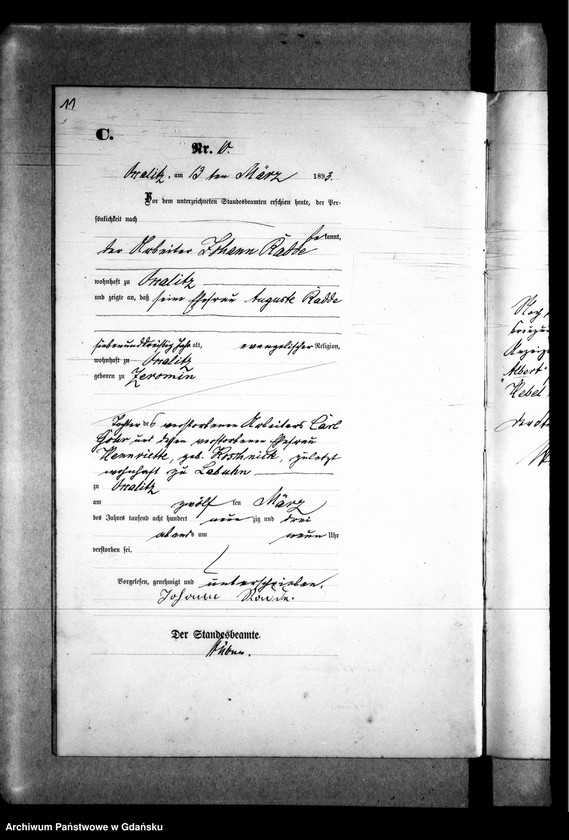 11
C.
Nr.
am 13 ten März 1893.
Vor dem unterzeichneten Standesbeamten erschien heute, der Per-
sönlichkeit nach
bekannt,
der Arbeiter Johann Radde
wohnhaft zu
und zeigte an, daß seine Ehefrau Auguste Radde
siebenunddreißig Jahr alt, evangelischer Religion,
wohnhaft zu
geboren zu Zeromin
Tochter des verstorbenen Arbeiters Carl
und dessen verstorbene Ehefrau
Henriette, geb. zuletzt
wohnhaft zu Labuhn
zu
am zwölf ten März
des Jahres tausend acht hundert neun zig und drei
abends um neun Uhr
verstorben sei.
Vorgelesen, genehmigt und unterschrieben.
Johann Radde.
Der Standesbeamte.
Albert
Hebel
Archiwum Państwowe w Gdańsku